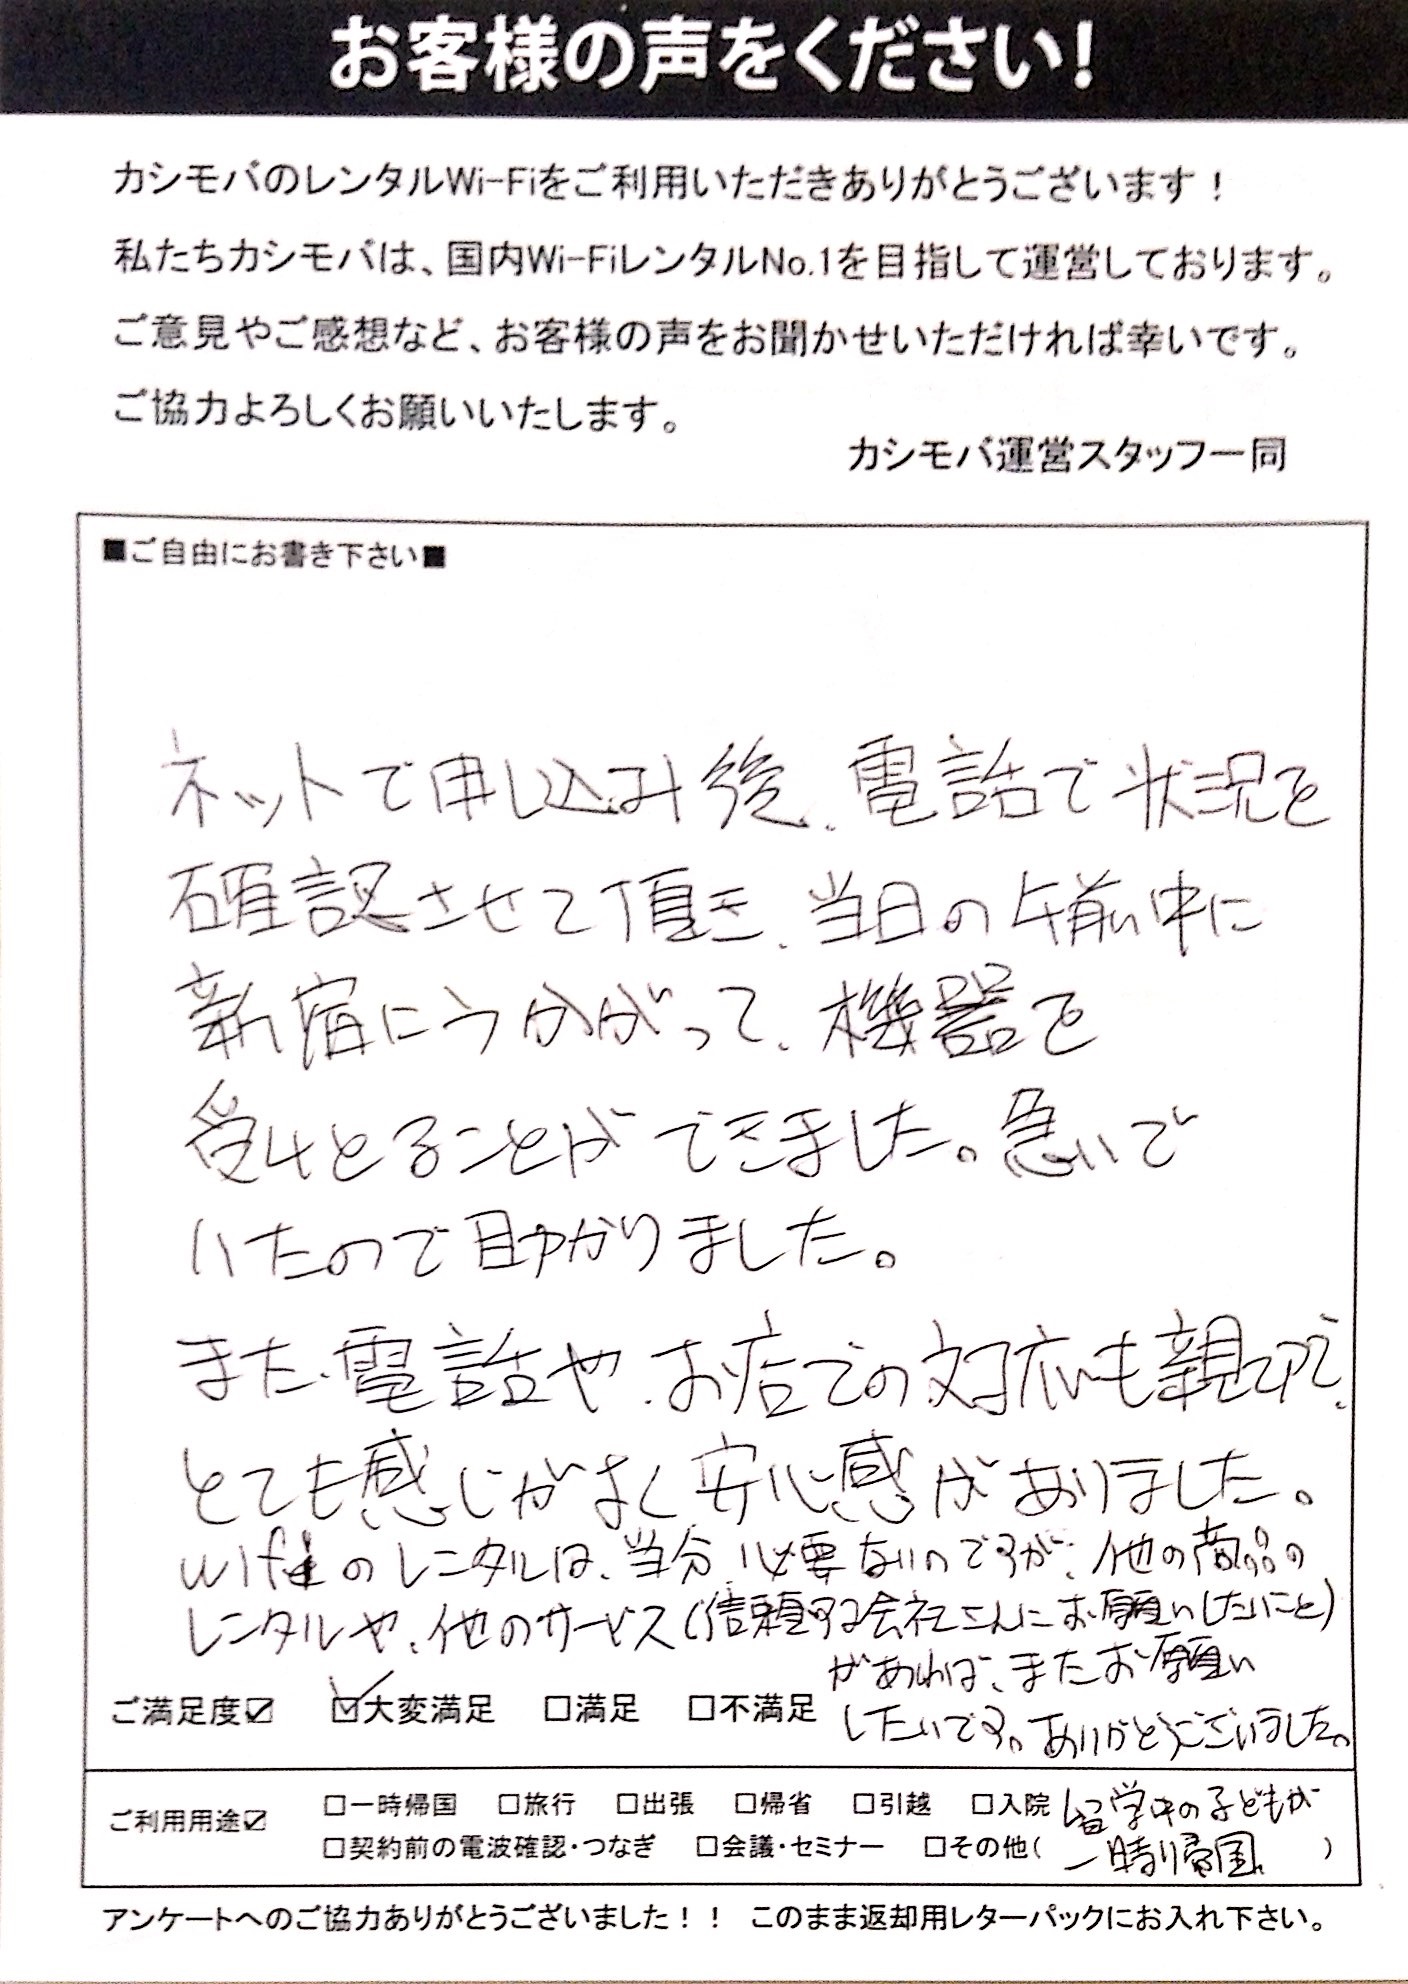 お客様の声をください!
カシモバのレンタルWi-Fiをご利用いただきありがとうございます！
私たちカシモバは、国内Wi-FiレンタルNo.1を目指して運営しております。
ご意見やご感想など、お客様の声をお聞かせいただければ幸いです。
ご協力よろしくお願いいたします。
カシモバ運営スタッフ一同
■ご自由にお書き下さい■
ネットで申し込み後、電話で状況を
確認させて頂き、当日の午前中に
新宿にうかがって、機器を
受けとることができました。急いで
いたので助かりました。
また、電話や、お店での対応も親切で、
とても感じがよく安心感がありました。
wifiのレンタルは、当分、必要ないのですが、他の商品の
レンタルや、他のサービス(信頼する会社さんにお願いしたいこと)
があれば、またお願い
したいです。ありがとうございました。
ご満足度☑ ☑大変満足 □満足 □不満足
ご利用用途☑ □一時帰国 □旅行 □出張 □帰省 □引越 □入院
□契約前の電波確認・つなぎ □会議・セミナー □その他( 留学中の子どもが
一時帰国 )
アンケートへのご協力ありがとうございました！！ このまま返却用レターパックにお入れ下さい。